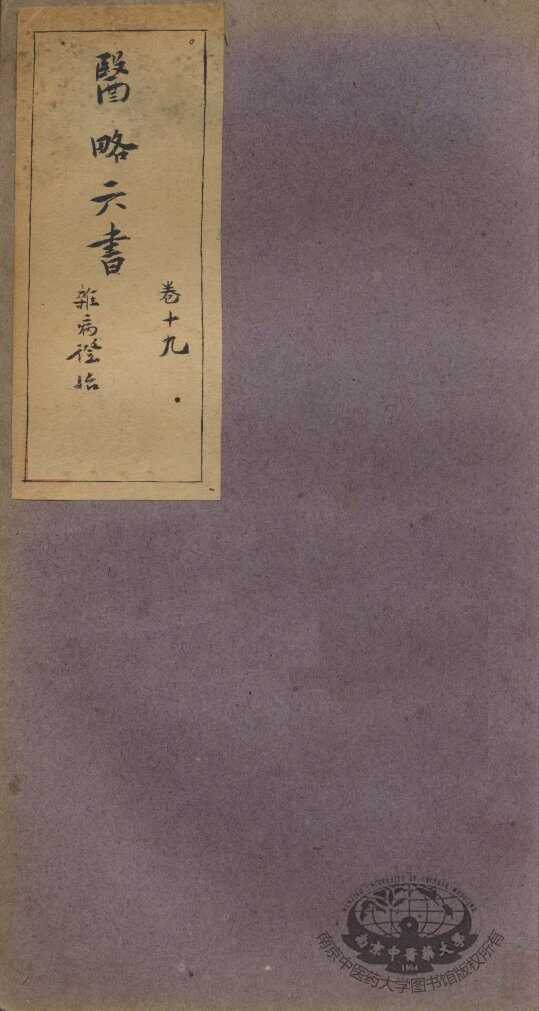 醫略六書
卷十九
雜病證治
NANJING UNIVERSITY OF CHINESE MEDICINE
南京中醫藥大學
1954
南京中医药大学图书馆版权所有